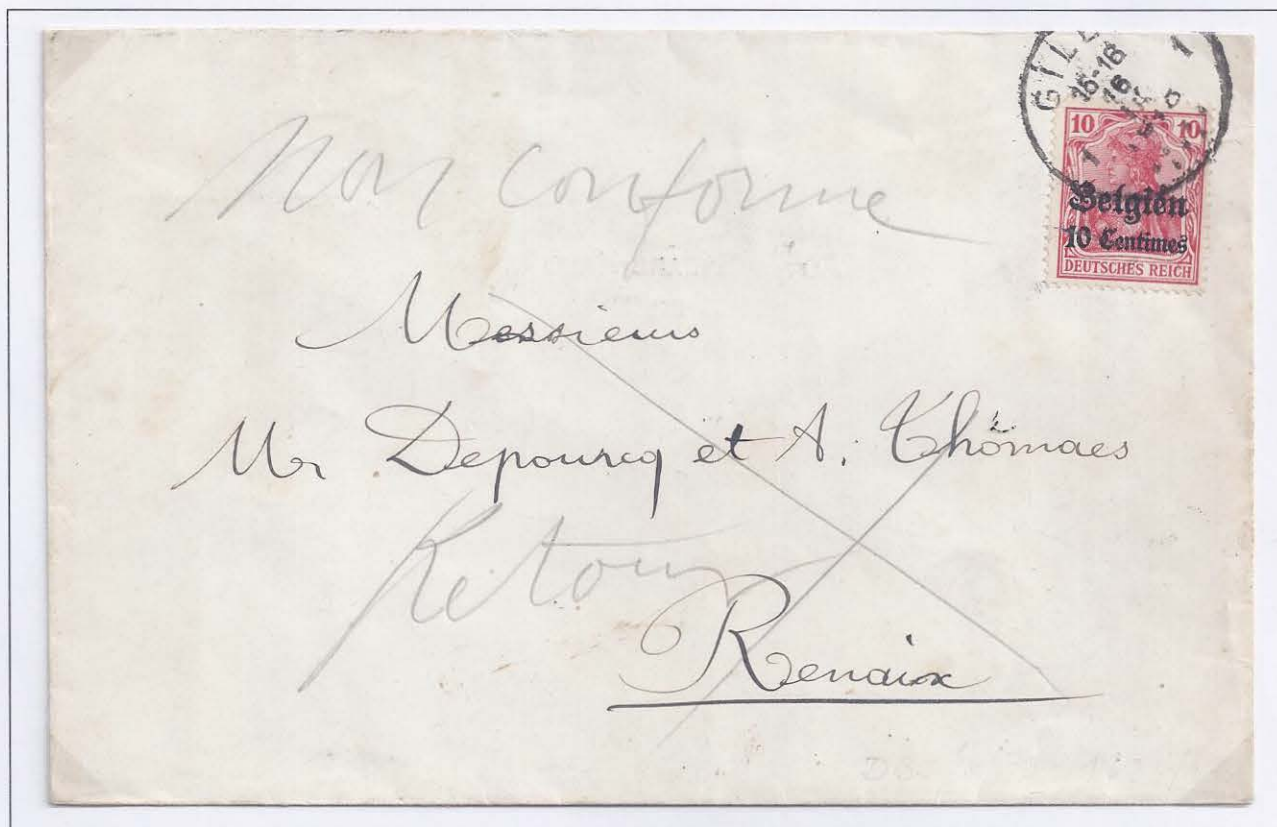 GILL
15-16
16
1
1
10 10
Belgien
10 Centimes
DEUTSCHES REICH
Non conforme
Messieurs
Mr Depourcq et A. Thomaes
Retour
Renaix